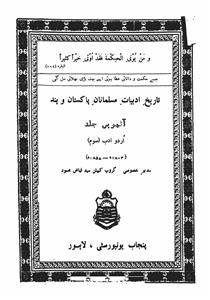 و من يؤتى الحكمة فقد اوتى خيراً كثيراً
جسے حکمت و دانائی عطا ہوئی اسے بہت بڑی بھلائی مل گئی
تاریخ ادبیات مسلمانان پاکستان و ہند
آٹھویں جلد
اُردو ادب (سوم)
مدیر خصوصی گروپ کیپٹن سید فیاض محمود
پنجاب یونیورسٹی ، لاہور